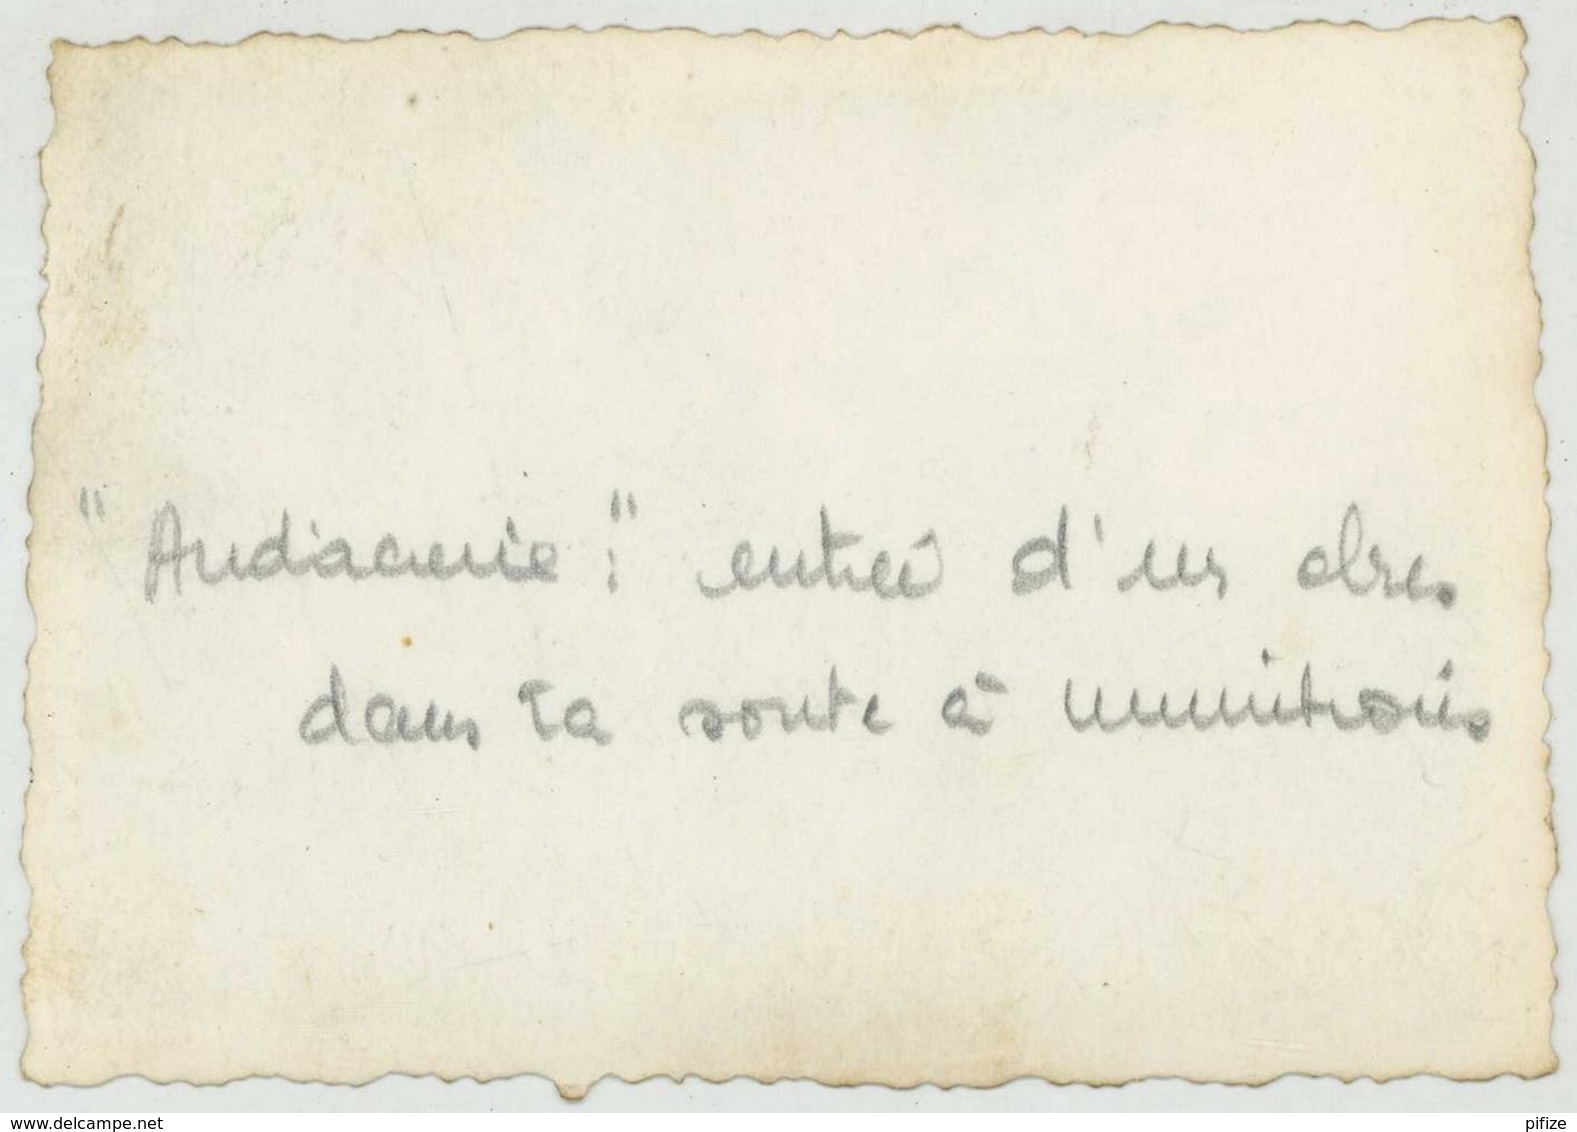 "Audacieuse": entrée d'un obus
dans la soute à munitions
delcampe.net
pifize